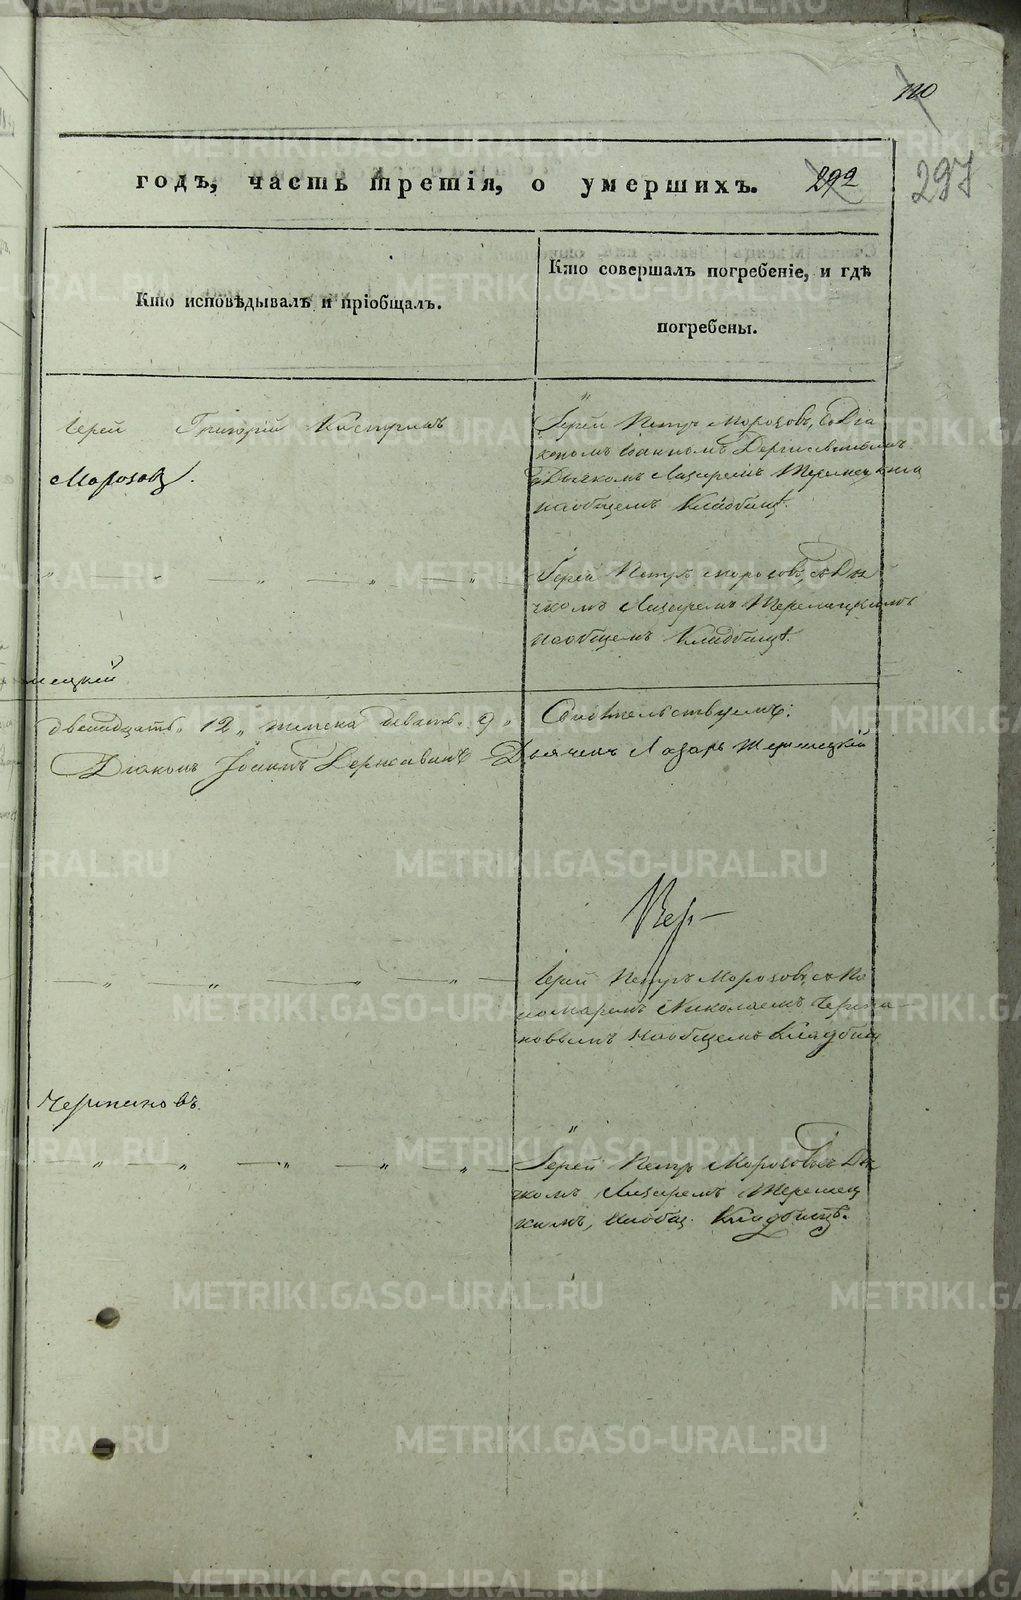 120
297
годъ, часть третія, о умершихъ. 292
Кто исповѣдывалъ и пріобщалъ.
Кто совершалъ погребеніе, и гдѣ
погребены.
Іерей Григорій
Морозовъ.
Іерей Петръ Морозовъ, съ Діа
кономъ Іоанномъ Державинымъ
Дьячкомъ Лазаремъ
на общемъ Кладбищѣ.
Іерей Петръ Морозовъ, съ Дья
чкомъ Лазаремъ Теремецкимъ
на общемъ Кладбищѣ.
мецкій
двенадцать 12, женска девять 9, Свидѣтельствуемъ:
Діаконъ Іоаннъ Державинъ Дьячекъ Лазарь Теремецкій
Іерей Петръ Морозовъ, съ По
номаремъ Николаемъ Черепа
новымъ на общемъ Кладбищ
Черепановъ.
Іерей Петръ Морозовъ съ Дья
чкомъ Лазаремъ Теремец
кимъ, на общ. Кладбищѣ.
METRIKI.GASO-URAL.RU